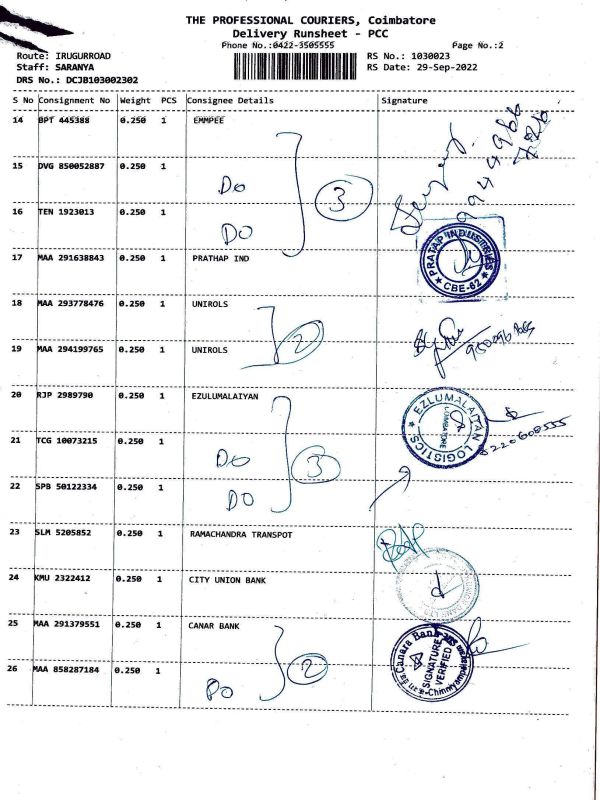 THE PROFESSIONAL COURIERS, Coimbatore
Delivery Runsheet - PCC
Phone No.:0422-3505555 Page No.:2
Route: IRUGURROAD RS No.: 1030023
Staff: SARANYA RS Date: 29-Sep-2022
DRS No.: DCJB103002302
S No Consignment No Weight PCS Consignee Details Signature
14 BPT 445388 0.250 1 EMMPEE
99444966
7826
15 DVG 850052887 0.250 1 DO
3
16 TEN 1923013 0.250 1 DO
17 MAA 291638843 0.250 1 PRATHAP IND
PRATAP INDUSTRIES
CBE-62
18 MAA 293778476 0.250 1 UNIROLS
2
19 MAA 294199765 0.250 1 UNIROLS
20 RJP 2989790 0.250 1 EZULUMALAIYAN
EZLUMALAITAN LOGISTICS
8220600555
21 TCG 10073215 0.250 1 DO
3
22 SPB 50122334 0.250 1 DO
23 SLM 5205852 0.250 1 RAMACHANDRA TRANSPOT
24 KMU 2322412 0.250 1 CITY UNION BANK
25 MAA 291379551 0.250 1 CANAR BANK
Canara Bank
SIGNATURE
VERIFIED
2
26 MAA 858287184 0.250 1 DO